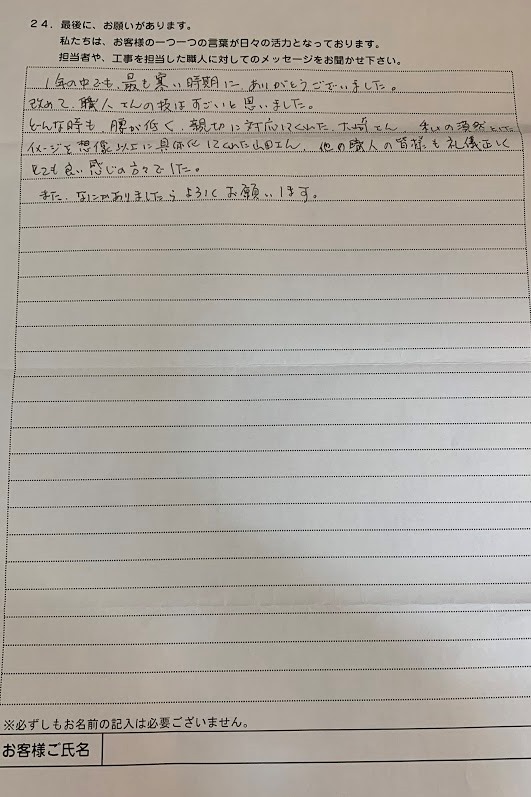 24．最後に、お願いがあります。
私たちは、お客様の一つ一つの言葉が日々の活力となっております。
担当者や、工事を担当した職人に対してのメッセージをお聞かせ下さい。
1年の中でも、最も寒い時期に ありがとうございました。
改めて、職人さんの技はすごいと思いました。
どんな時も 腰が低く、親切に対応してくれた 大崎さん、私の漠然とした
イメージを想像以上に具体化してくれた山田さん、他の職人の皆様も礼儀正しく
とても良い感じの方々でした。
また、なにかありましたら よろしくお願いします。
※必ずしもお名前の記入は必要ございません。
お客様ご氏名